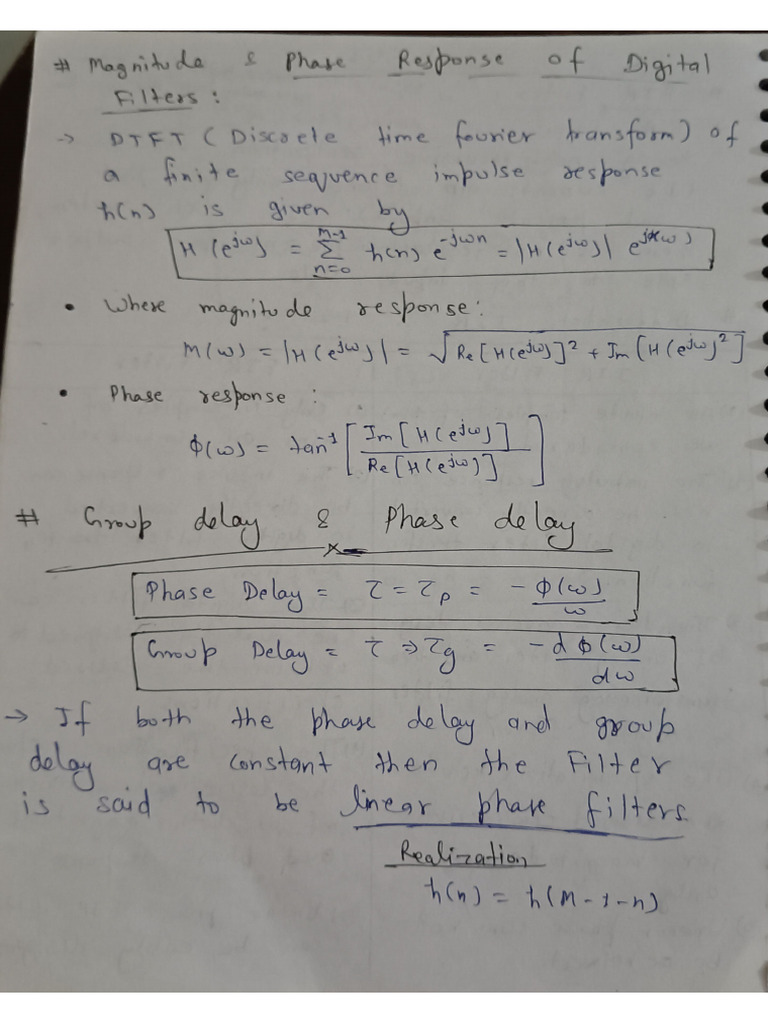 # Magnitude & Phase Response of Digital
Filters :
→ DTFT ( Discrete time fourier transform) of
a finite sequence impulse response
h(n) is given by
H(e^jω) = Σ_{n=0}^{M-1} h(n) e^-jωn = |H(e^jω)| e^jα(ω)
• Where magnitude response :
M(ω) = |H(e^jω)| = √Re[H(e^jω)]² + Im[H(e^jω)²]
• Phase response :
Φ(ω) = tan⁻¹ [ Im[H(e^jω)] / Re[H(e^jω)] ]
# Group delay & Phase delay
Phase Delay = τ = τp = - Φ(ω) / ω
Group Delay = τ ⇒ τg = - d Φ(ω) / dω
→ If both the phase delay and group
delay are constant then the Filter
is said to be linear phase filters.
Realization
h(n) = h(M-1-n)